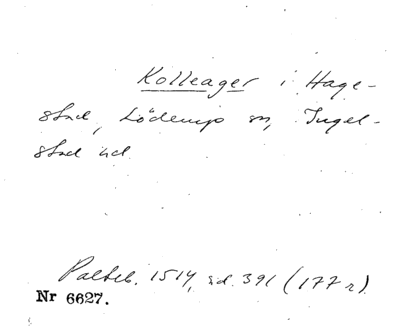 Kolleager i Hage-
stad, Löderups sn, Ingel-
stad hd
Palteb. 1514, sid. 391 (177 r).
Nr 6627.